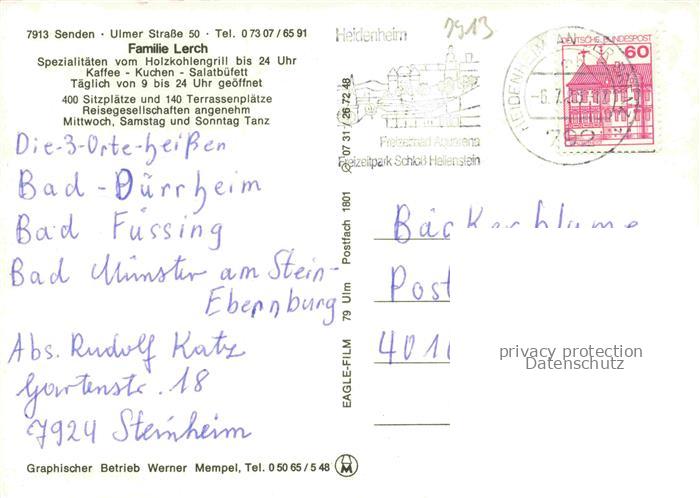 7913 Senden · Ulmer Straße 50 · Tel. 0 73 07 / 65 91
Familie Lerch
Spezialitäten vom Holzkohlengrill bis 24 Uhr
Kaffee - Kuchen - Salatbüfett
Täglich von 9 bis 24 Uhr geöffnet
400 Sitzplätze und 140 Terrassenplätze
Reisegesellschaften angenehm
Mittwoch, Samstag und Sonntag Tanz
Die-3-Orte-heißen
Bad - Dürrheim
Bad Füssing
Bad Münster am Stein-
Ebernburg
Abs. Rudolf Katz
Gartenstr. 18
7924 Steinheim
Graphischer Betrieb Werner Mempel, Tel. 0 50 65 / 5 48
EAGLE-FILM 79 Ulm Postfach 1801 07 31 / 26 72 48
7913
Heidenheim
Freizeitbad Aquarena
Freizeitpark Schloß Hellenstein
HEIDENHEIM AN DER
792
DEUTSCHE BUNDESPOST
60
Bäckerblume
Post
401
privacy protection
Datenschutz